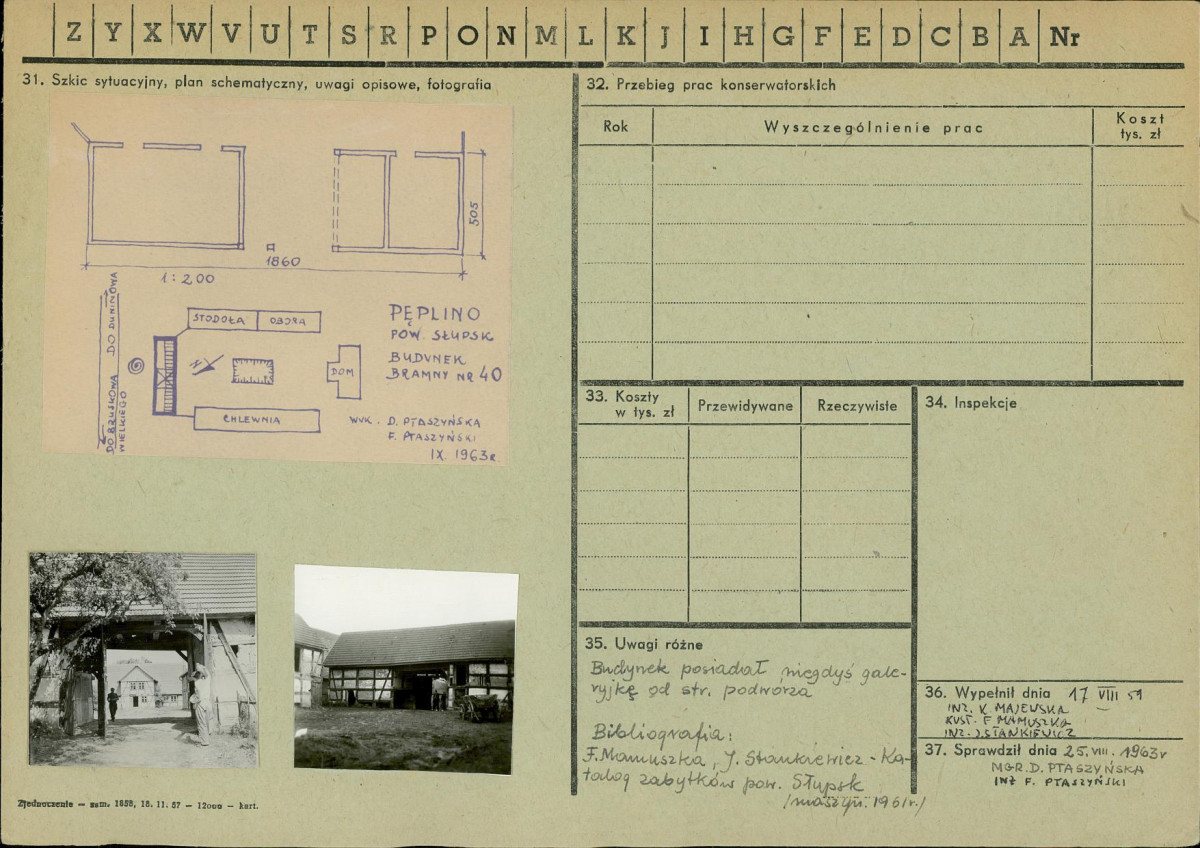 Z Y X W V U T S R P O N M L K J I H G F E D C B A Nr
31. Szkic sytuacyjny, plan schematyczny, uwagi opisowe, fotografia
505
1860
1:200
DO DUNINOWA
DO BRUSKOWA
WIELKIEGO
STODOŁA OBORA
N
DOM
CHLEWNIA
PĘPLINO
POW. SŁUPSK
BUDYNEK
BRAMNY NR 40
WYK. D. PTASZYŃSKA
F. PTASZYŃSKI
IX. 1963r.
Zjednoczenie — zam. 1658, 15. 11. 57 — 12000 — kart.
32. Przebieg prac konserwatorskich
Rok
Wyszczególnienie prac
Koszt
tys. zł
33. Koszty
w tys. zł
Przewidywane
Rzeczywiste
34. Inspekcje
35. Uwagi różne
Budynek posiadał niegdyś gale-
ryjkę od str. podwórza
Bibliografia:
F. Mamuszka, J. Stankiewicz - Ka-
talog zabytków pow. Słupsk
/maszyn. 1961r./
36. Wypełnił dnia 17 VIII 59
INŻ. K. MAJEWSKA
KUST. F. MAMUSZKA
INŻ. J. STANKIEWICZ
37. Sprawdził dnia 25. VIII. 1963r
MGR. D. PTASZYŃSKA
INŻ F. PTASZYŃSKI